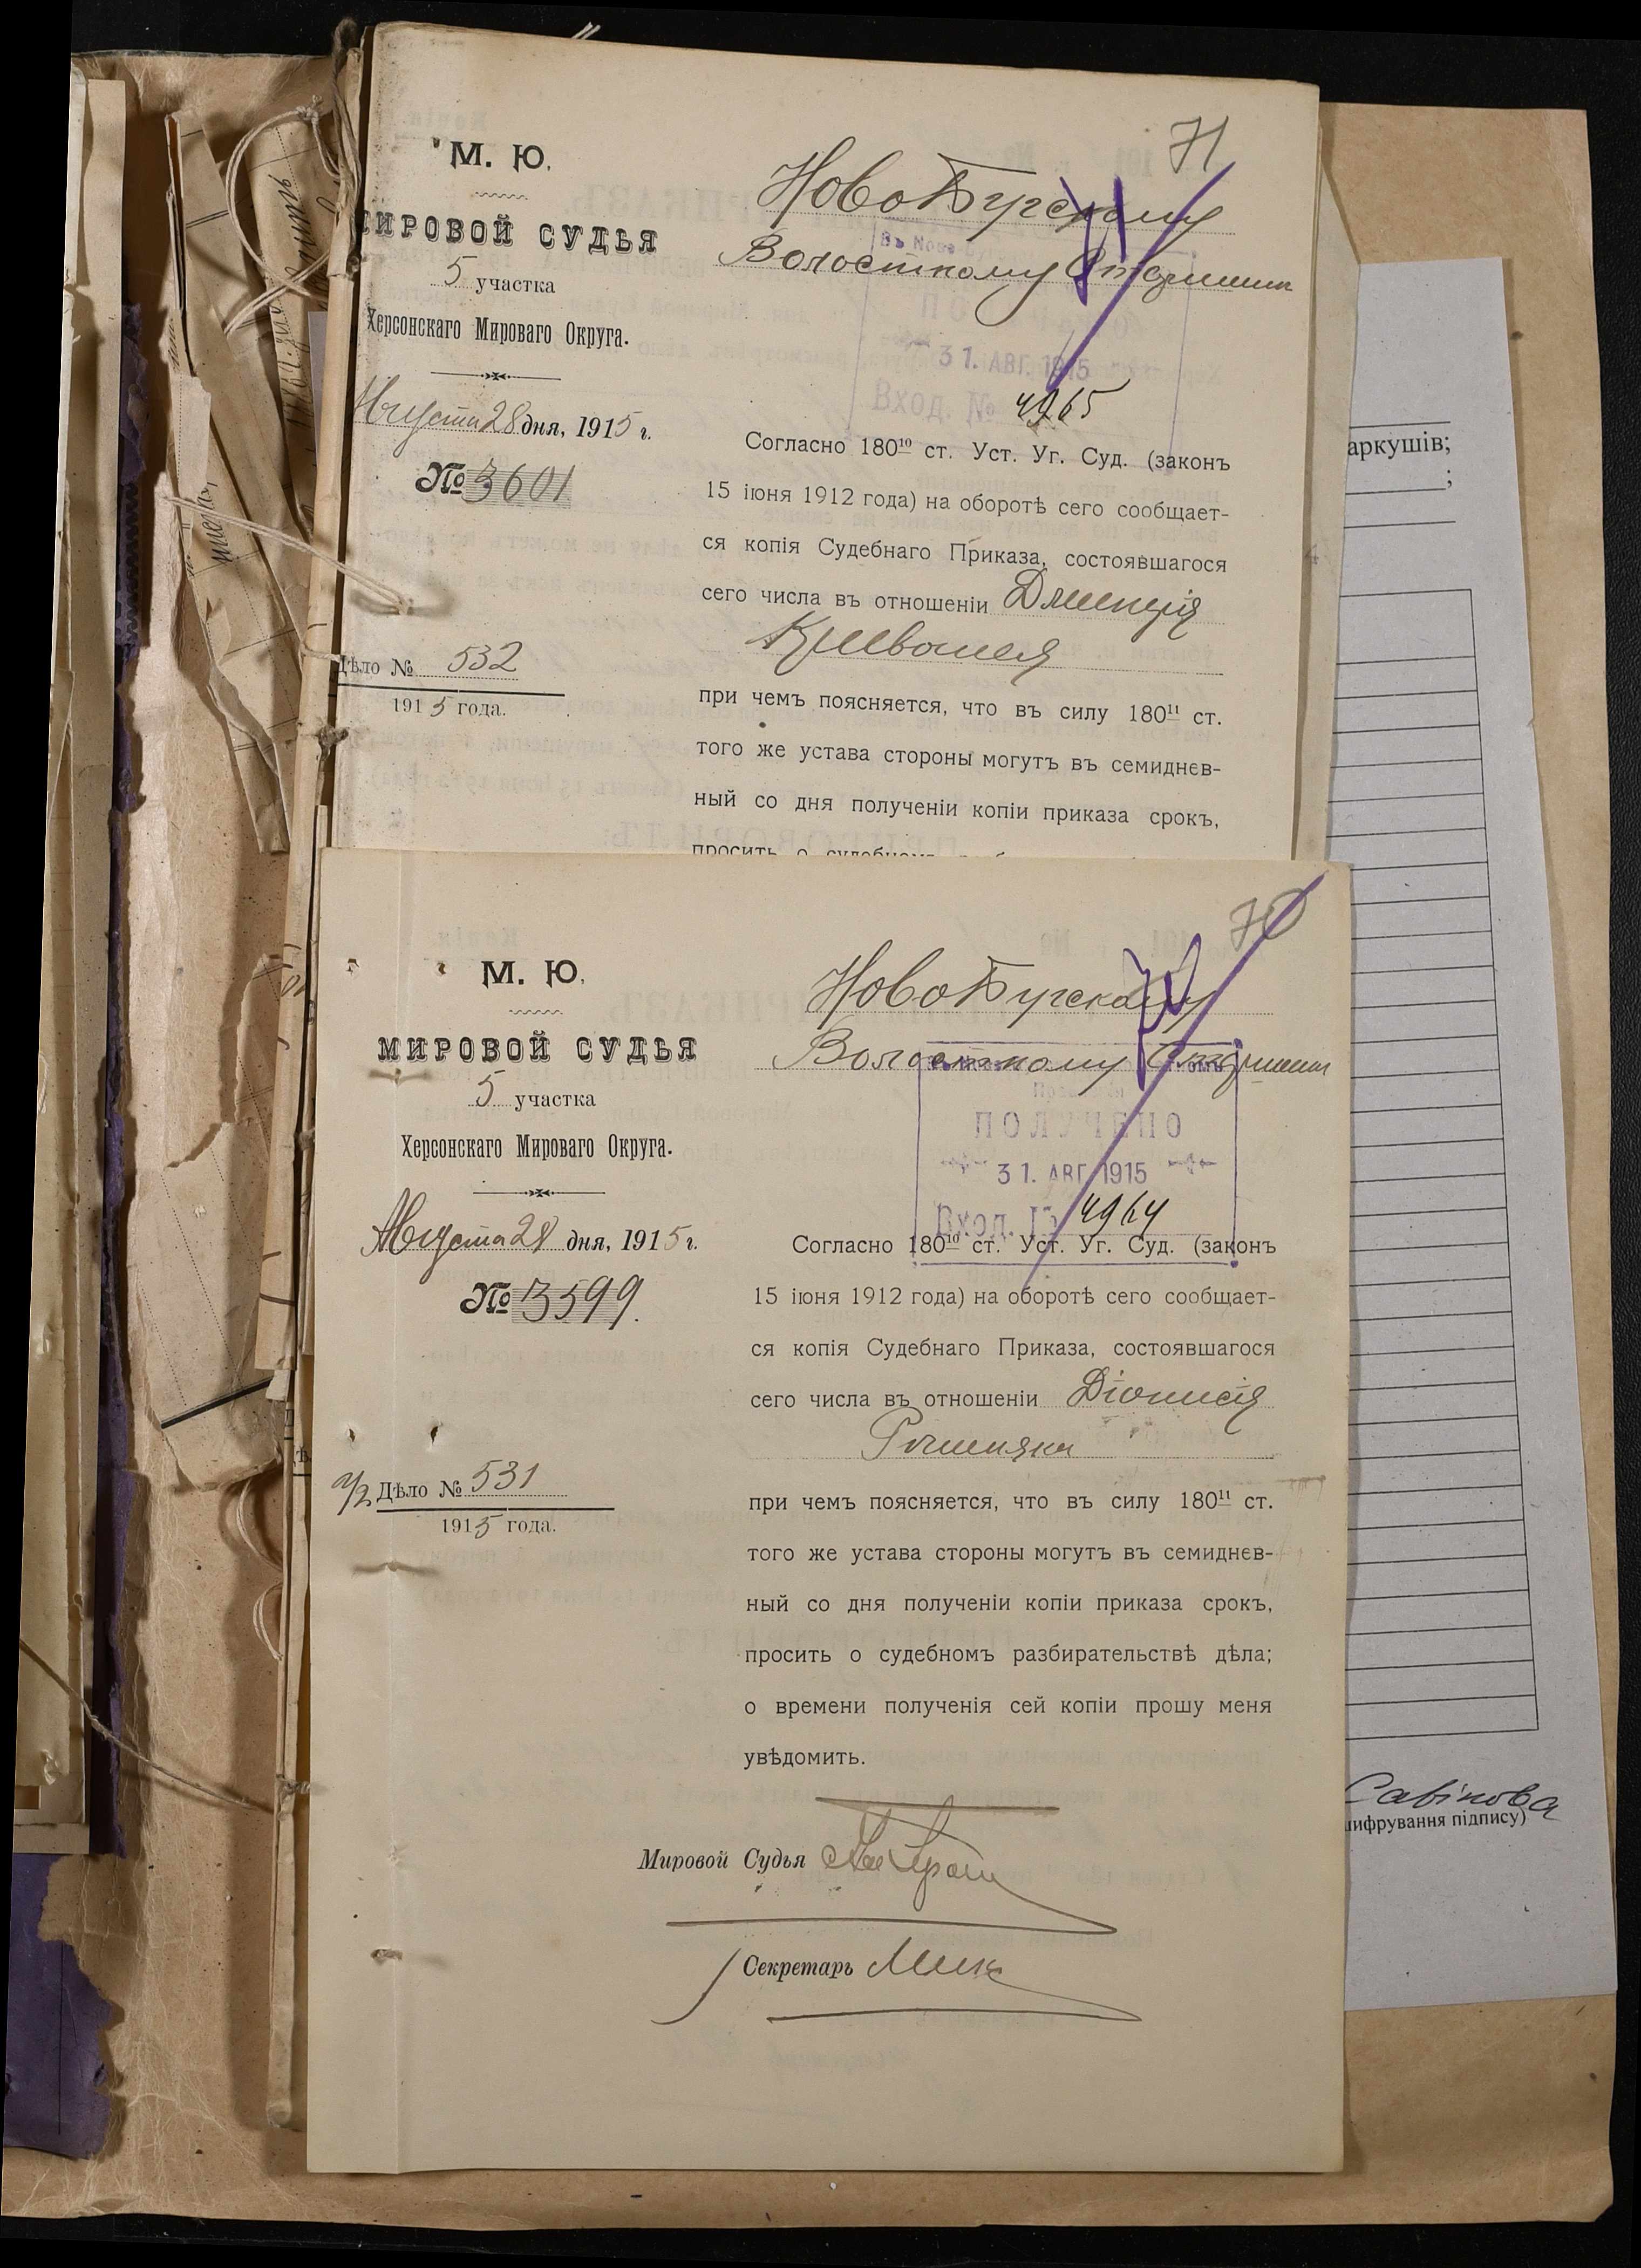 71
М. Ю.
МИРОВОЙ СУДЬЯ
5 участка
Херсонскаго Мироваго Округа.
Августа 28 дня, 1915 г.
№ 3601
Дѣло № 532
1915 года.
НовоБугскому
Волостному Старшине
71
Въ Ново
31. АВГ. 1915
Вход. № 4965
Согласно 180¹⁰ ст. Уст. Уг. Суд. (законъ
15 іюня 1912 года) на оборотѣ сего сообщает-
ся копія Судебнаго Приказа, состоявшагося
сего числа въ отношеніи Дмитрія
Кривошея
при чемъ поясняется, что въ силу 180¹¹ ст.
того же устава стороны могутъ въ семиднев-
ный со дня полученіи копіи приказа срокъ,
просить о судебномъ
70
М. Ю.
МИРОВОЙ СУДЬЯ
5 участка
Херсонскаго Мироваго Округа.
Августа 28 дня, 1915 г.
№ 3599.
Дѣло № 531
1915 года.
НовоБугскому
Волостному Старшине
70
ПОЛУЧЕНО
31. АВГ. 1915
Вход. № 4964
Согласно 180¹⁰ ст. Уст. Уг. Суд. (законъ
15 іюня 1912 года) на оборотѣ сего сообщает-
ся копія Судебнаго Приказа, состоявшагося
сего числа въ отношеніи Діонисія
при чемъ поясняется, что въ силу 180¹¹ ст.
того же устава стороны могутъ въ семиднев-
ный со дня полученіи копіи приказа срокъ,
просить о судебномъ разбирательствѣ дѣла;
о времени полученія сей копіи прошу меня
увѣдомить.
Мировой Судья
Секретарь
аркушів;
;
Савінова
шифрування підпису)